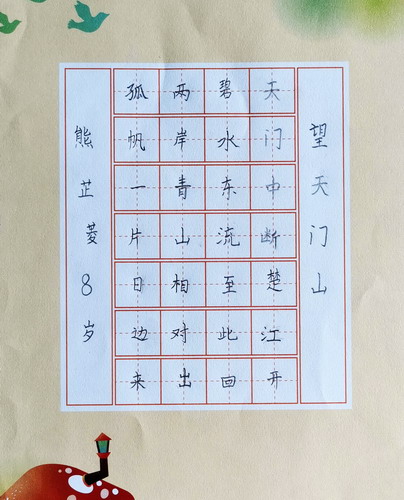 望天门山
天门中断楚江开
碧水东流至此回
两岸青山相对出
孤帆一片日边来
熊芷菱8岁